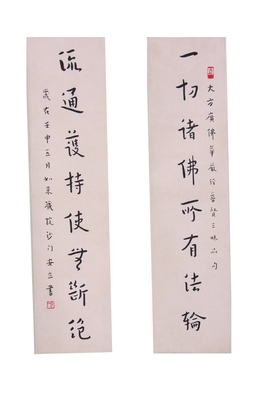 一切諸佛所有法輪
大方廣佛華嚴經普賢三昧品句
流通護持使無斷絕
歲在壬申五月如來藏院沙門安立書